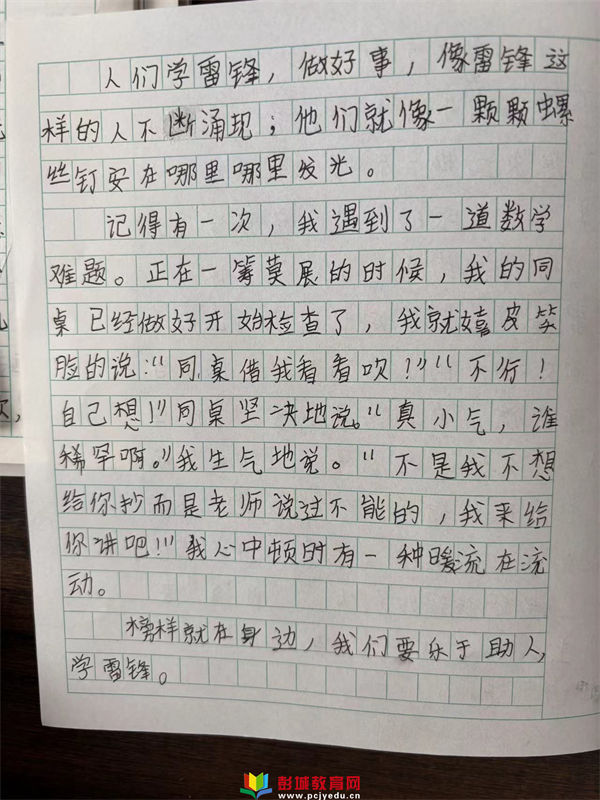 人们学雷锋，做好事，像雷锋这
样的人不断涌现；他们就像一颗颗螺
丝钉安在哪里哪里发光。
记得有一次，我遇到了一道数学
难题。正在一筹莫展的时候，我的同
桌已经做好开始检查了，我就嬉皮笑
脸的说：“同桌借我看看吹！”“不行！
自己想！”同桌坚决地说。“真小气，谁
稀罕啊。”我生气地说。“不是我不想
给你抄而是老师说过不能的，我来给
你讲吧！”我心中顿时有一种暖流在流
动。
榜样就在身边，我们要乐于助人，
学雷锋。
彭城教育网
www.pcjyedu.cn